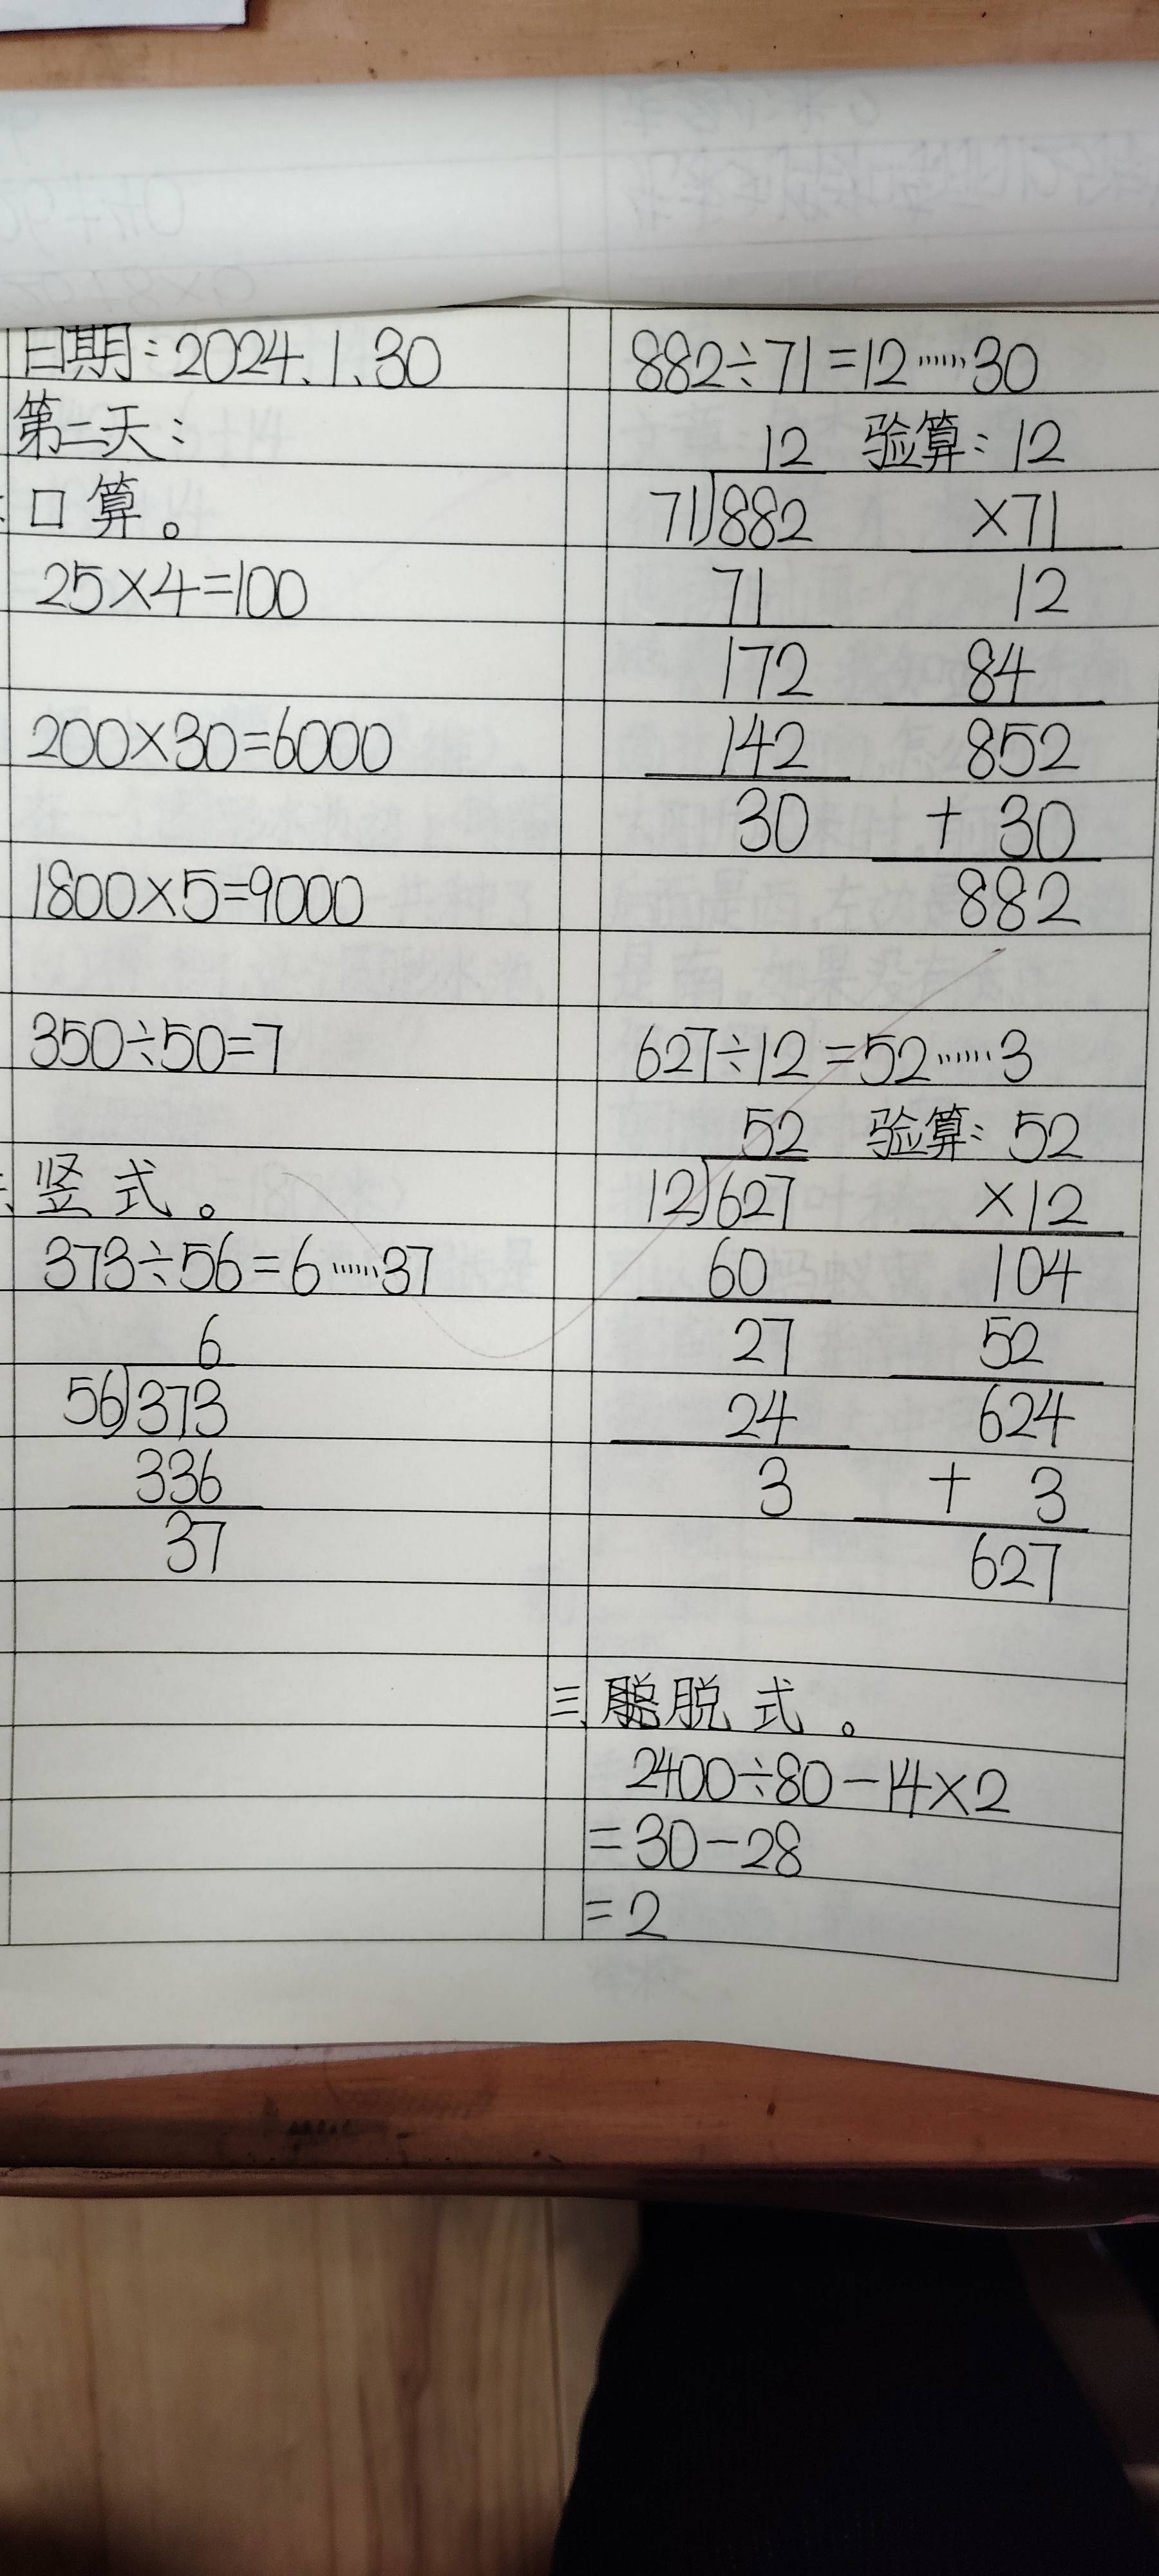 日期:2024.1.30
第二天:
口算。
25×4=100
200×30=6000
1800×5=9000
350÷50=7
竖式。
373÷56=6……37
6
56)373
336
37
882÷71=12……30
12 验算:12
71)882 ×71
71 12
172 84
142 852
30 + 30
882
627÷12=52……3
52 验算:52
12)627 ×12
60 104
27 52
24 624
3 + 3
627
三、脱式。
2400÷80-14×2
=30-28
=2